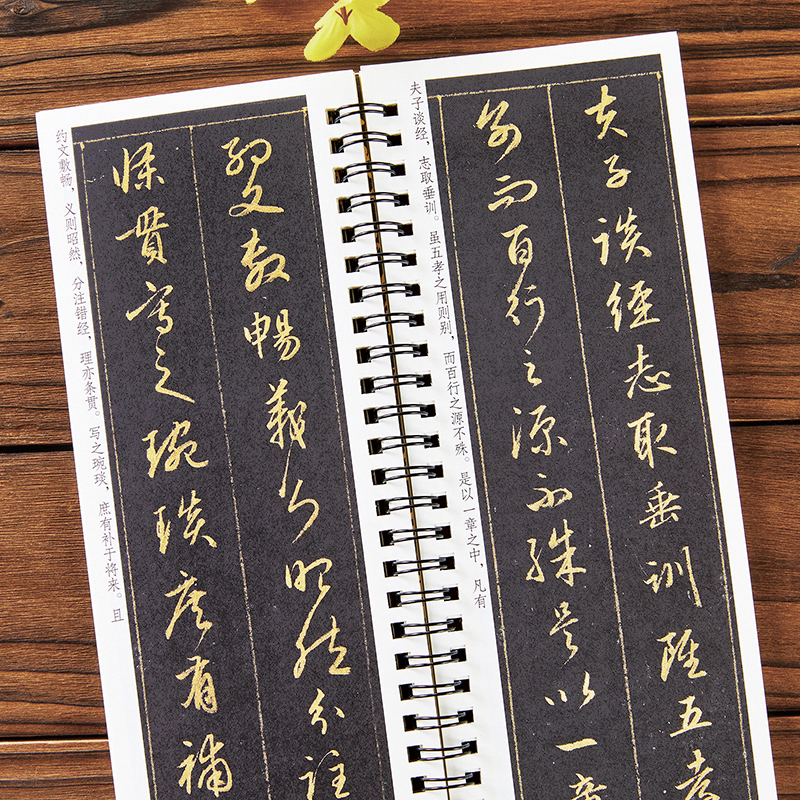 夫子談經志取垂訓雖五孝
別而百行之源不殊是以一章
夫子谈经，志取垂训。虽五孝之用则别，而百行之源不殊。是以一章之中，凡有
約文敷暢義則昭然分註
條貫寫之琬琰庶有補
约文敷畅，义则昭然，分注错经，理亦条贯。写之琬琰，庶有补于将来。且